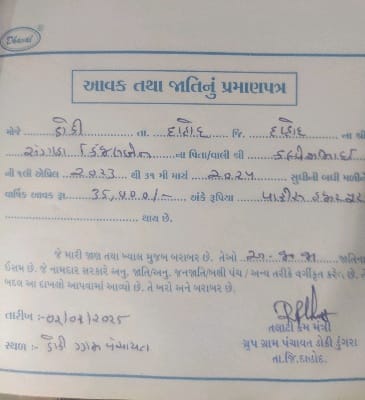 Dhaval
આવક તથા જાતિનું પ્રમાણપત્ર
મોજે ડોકી તા. દાહોદ જિ. દાહોદ ના શ્રી
ના પિતા/વાલી શ્રી
ની ૧લી એપ્રિલ ૨૦૨૩ થી ૩૧ મી માર્ચ ૨૦૨૫ સુધીની બધી મળીને
વાર્ષિક આવક રૂા. 35,400/- અંકે રૂપિયા
થાય છે.
જે મારી જાણ તથા ખ્યાલ મુજબ બરાબર છે. તેઓ અ.જ.જા જાતિના
ઈસમ છે. જે નામદાર સરકારે અનુ. જાતિ/અનુ. જનજાતિ/બક્ષી પંચ / અન્ય તરીકે વર્ગીકૃત કરેલ છે. તે
બદલ આ દાખલો આપવામાં આવ્યો છે. તે ખરો અને બરાબર છે.
તારીખ :-
સ્થળ :- ડોકી ગ્રામ પંચાયત
તલાટી કમ મંત્રી
ગ્રુપ ગ્રામ પંચાયત ડોકી ડુંગરા
તા.જિ.દાહોદ.